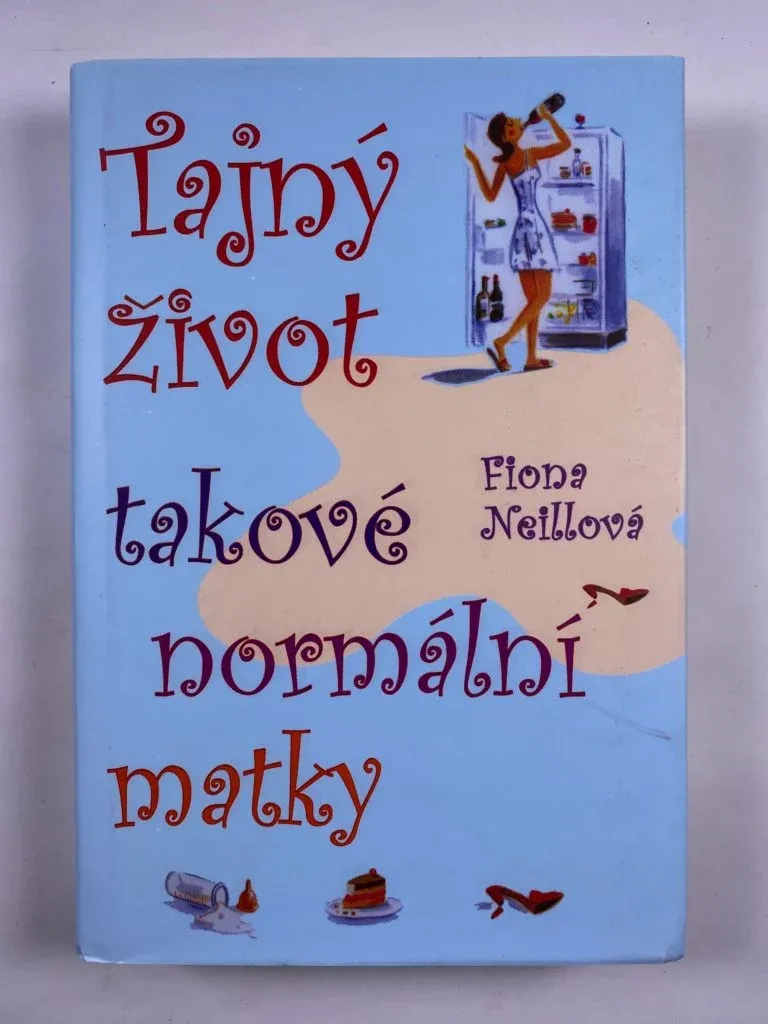 Tajný
život
takové
normální
matky
Fiona
Neillová